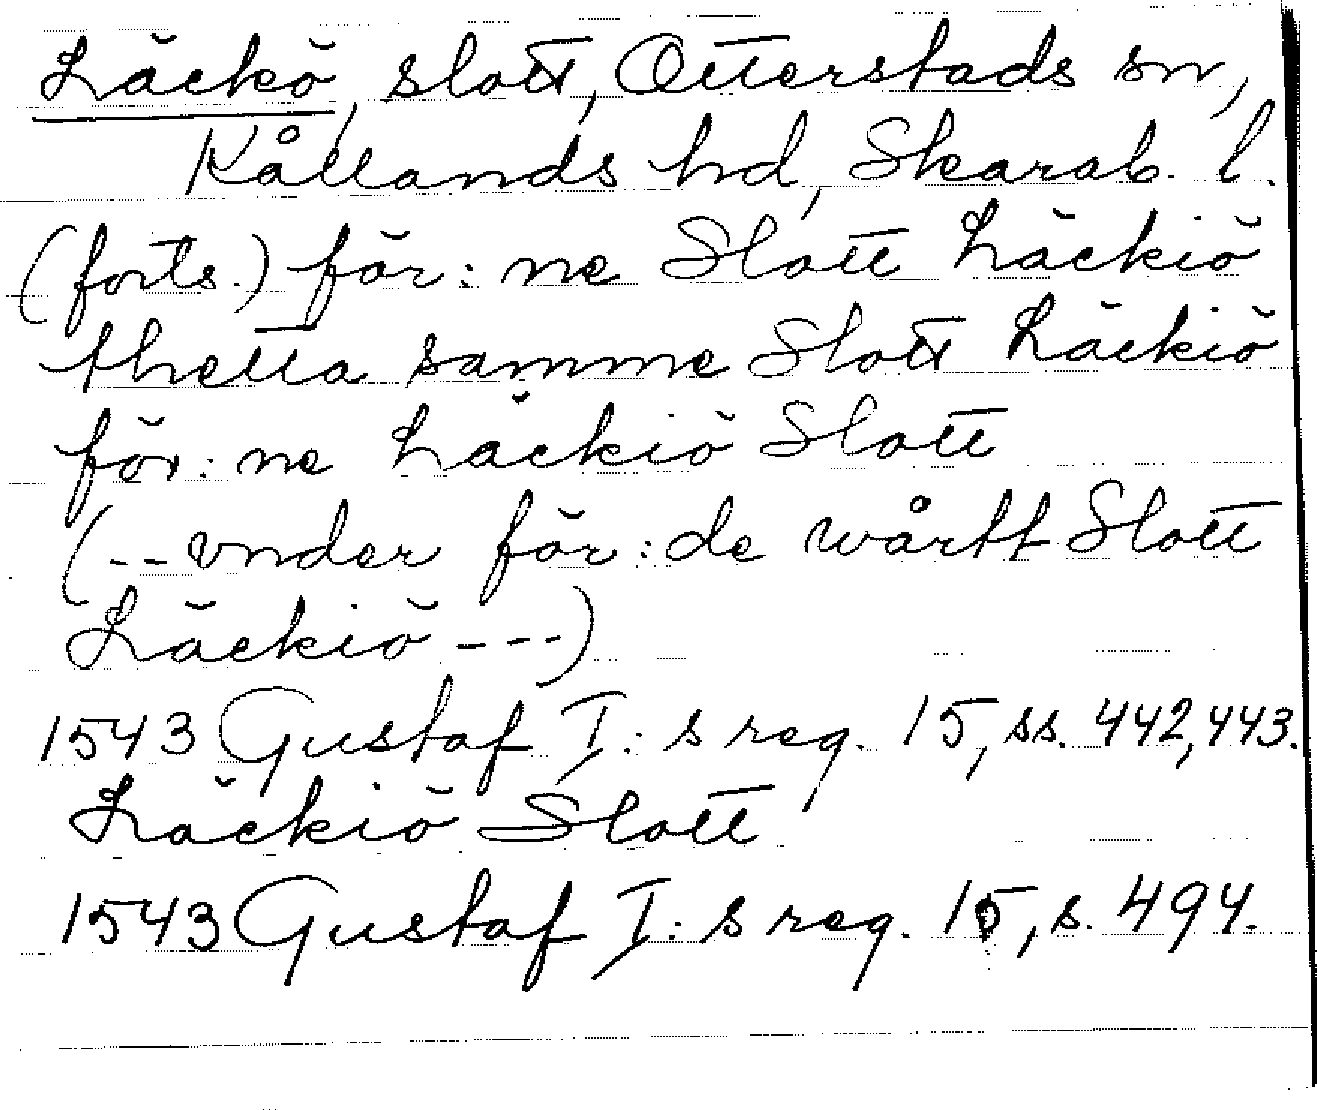 Läckö, slott, Otterstads sn,
Kållands hd, Skarab. l.
(forts.) för:ne Slott Läckiö
thetta samme Slott Läckiö
för:ne Läckiö Slott
(-- vnder för:de wårtt Slott
Läckiö ---)
1543 Gustaf I:s reg. 15, ss. 442, 443.
Läckiö Slott
1543 Gustaf I:s reg. 15, s. 494.